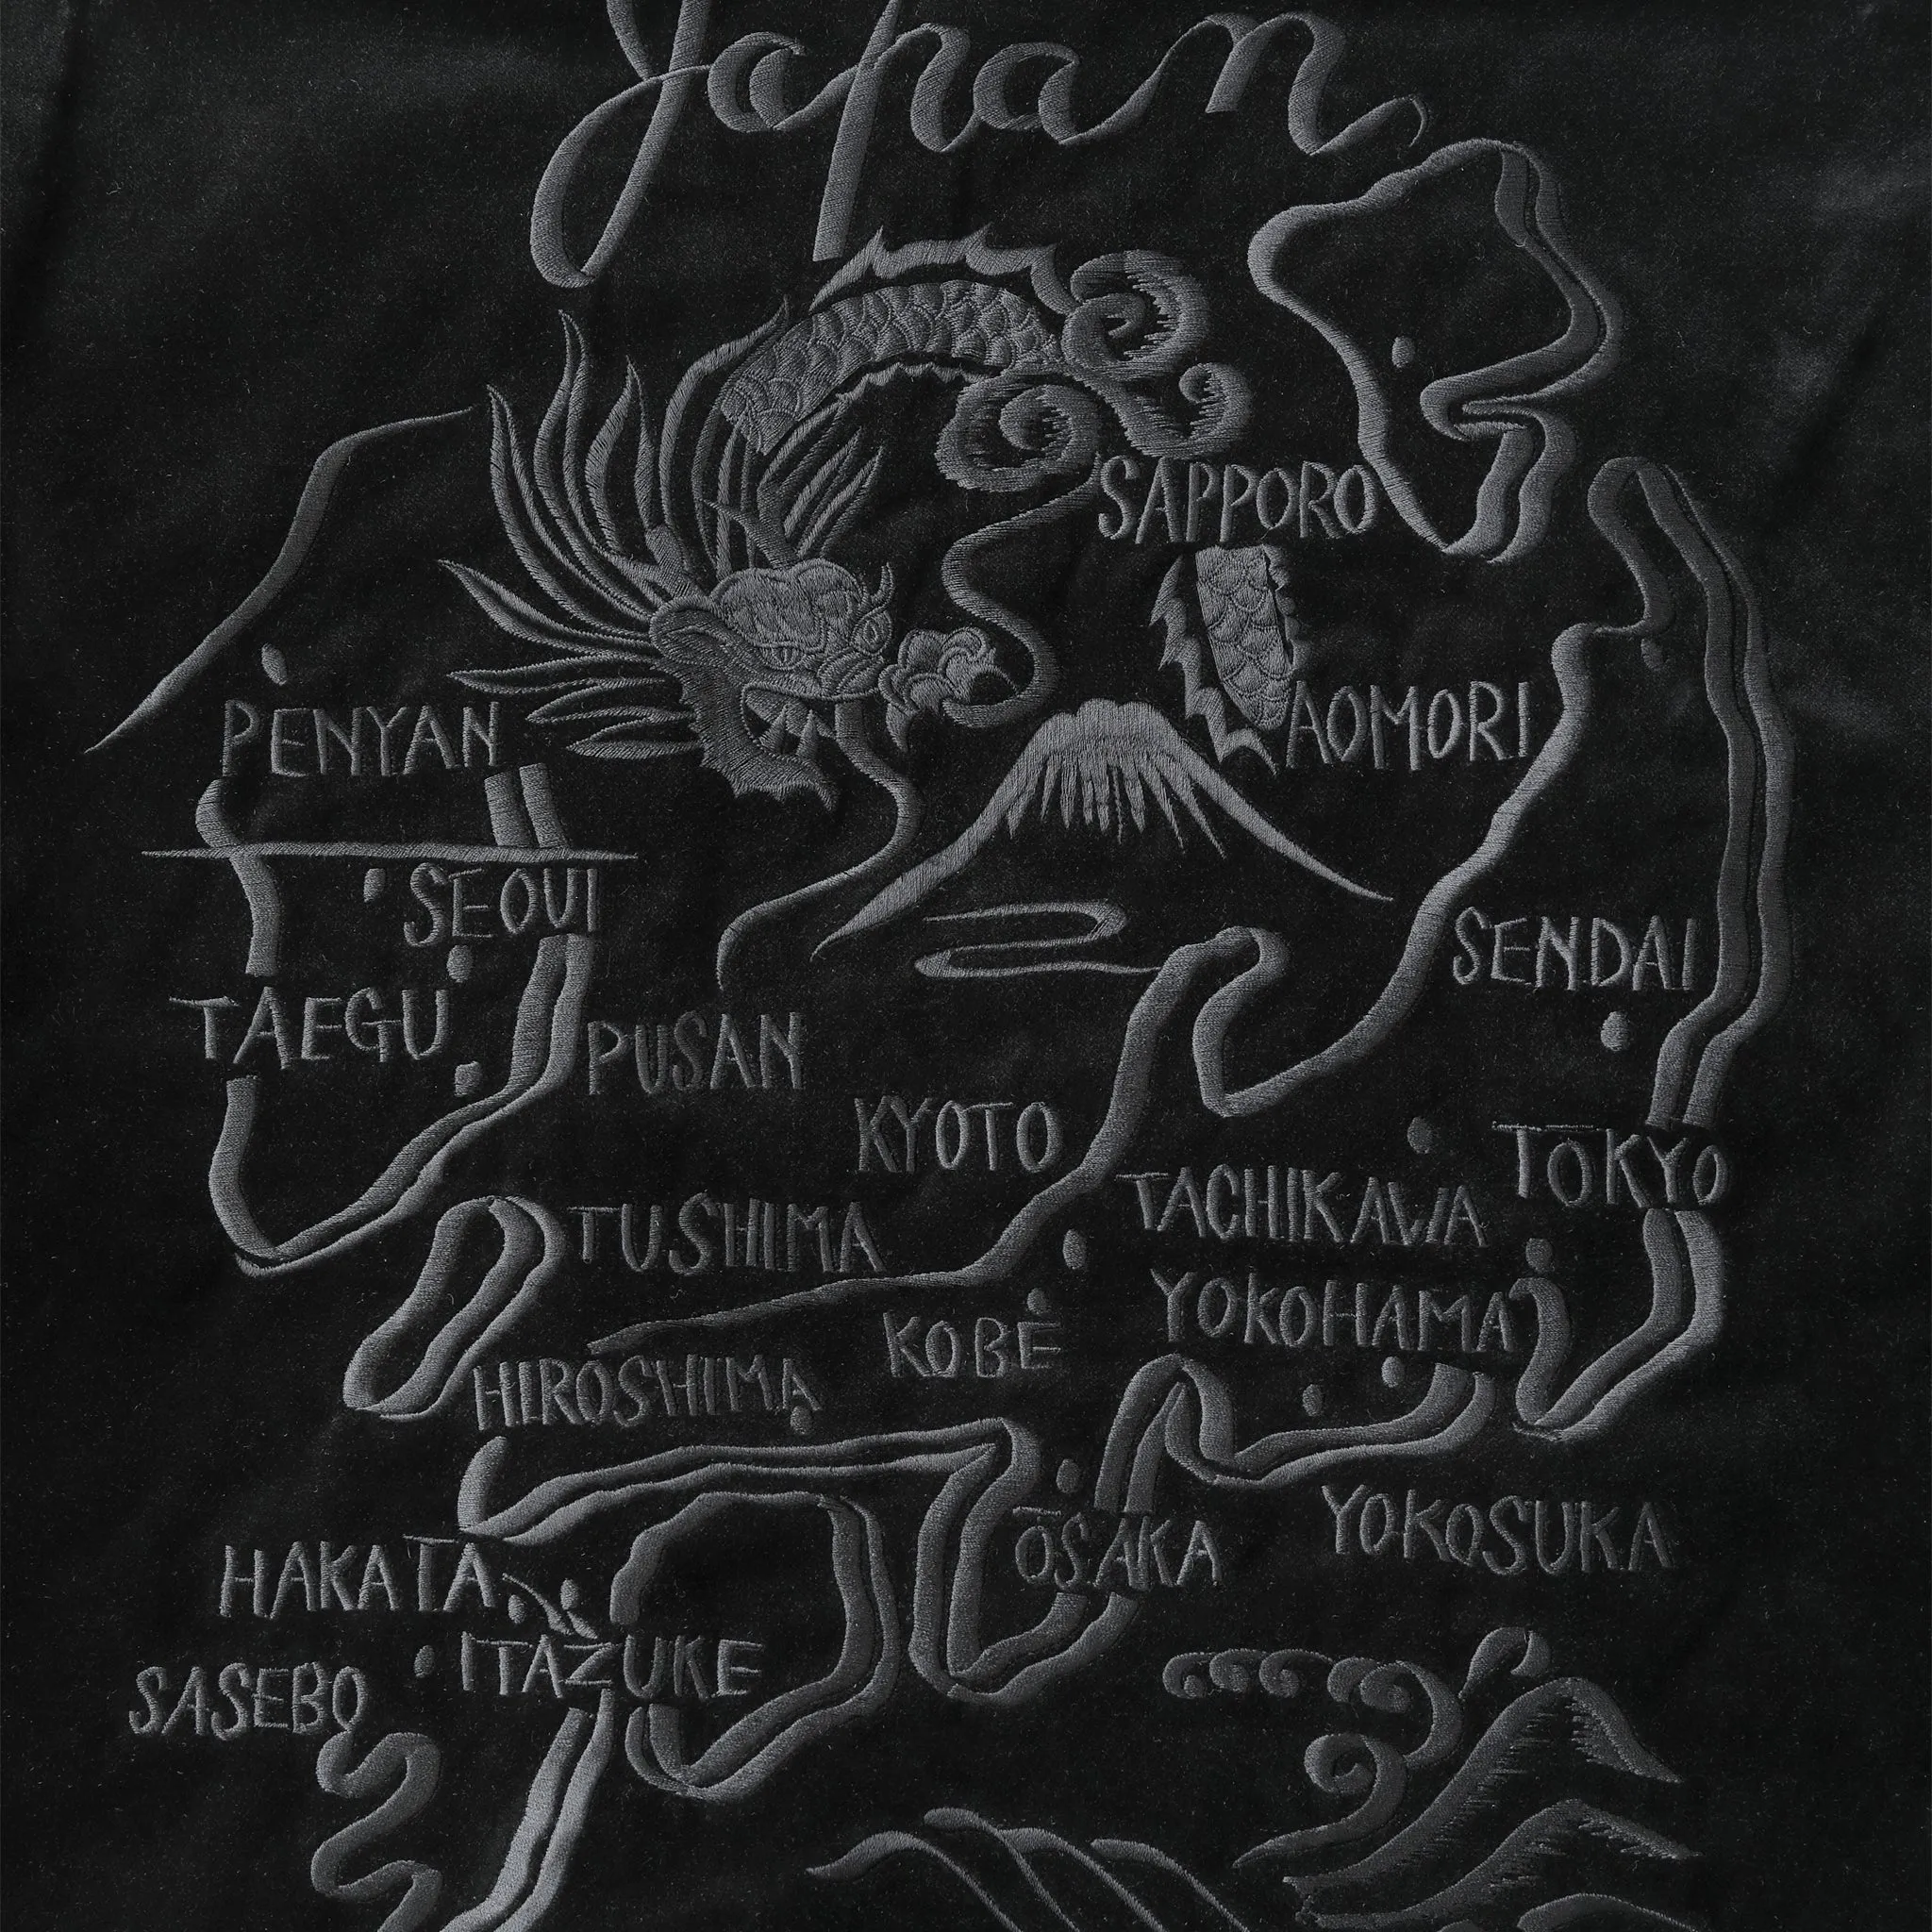 Japan
SAPPORO
PENYAN
AOMORI
SEOUl
SENDAI
TAEGU
PUSAN
KYOTO
TŌKYO
TACHIKAWA
TUSHIMA
YOKOHAMA
KOBE
HIROSHIMA
YOKOSUKA
ŌSAKA
HAKATA
ITAZUKE
SASEBO